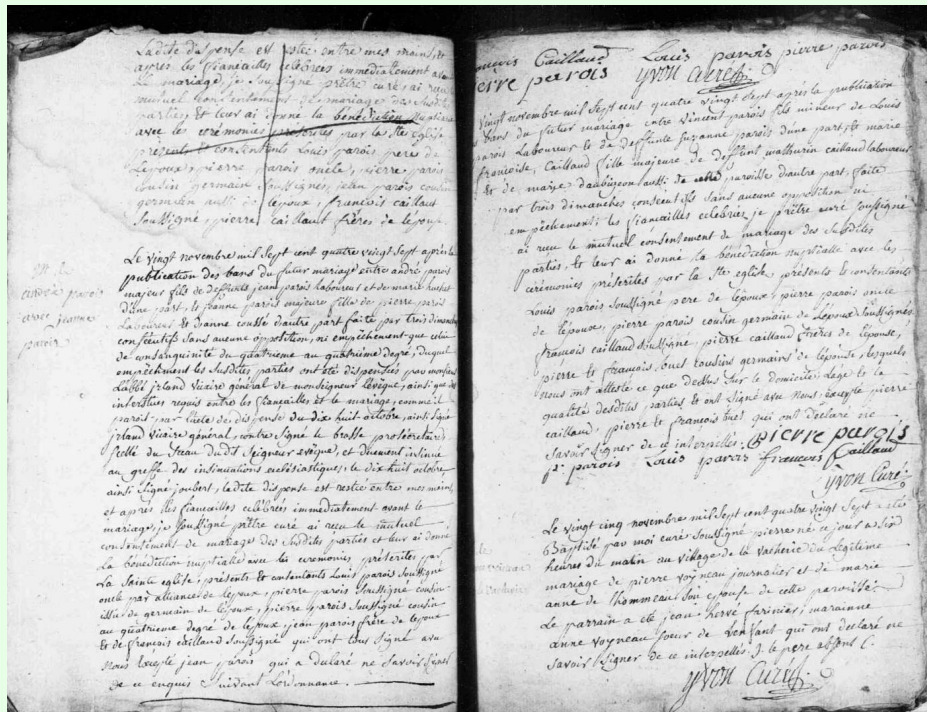 Ladite dispense est restée entre mes mains, et
après les fiancailles célébrées immédiatement avant
le mariage, je soussigné prêtre curé ai recu le
mutuel consentement de mariage des susdites
parties et leur ai donné la bénédiction nuptiale
avec les cérémonies préscrites par la Ste église
présents et consentants Louis parois pere de
Lépoux, pierre parois oncle, pierre parois
cousin germain soussignés, jean parois cousin
germain aussi de lépoux, francois caillaut
soussigné, pierre caillaut frères de lépouse
andré parois
avec jeanne
parois
Le vingt novembre mil sept cent quatre vingt sept après la
publication des bans du futur mariage entre andré parois
majeur fils de deffunts jean parois laboureur et de marie
d'une part, et jeanne parois majeure fille de pierre parois
Laboureur et d'anne cousse d'autre part faite par trois dimanches
consécutifs sans aucune opposition, ni empêchement que celui
de consanguinité du quatrieme au quatrième degré, duquel
empêchment les susdites parties ont été dispensées par monsieur
Labbé irland vicaire général de monseigneur Lévêque, ainsi que des
interstices requis entre les fiancailles et le mariage, comme il
paroit par l'acte de dispense du dix huit octobre, ainsi signé
irland vicaire général, contre signé le brosse prosécretaire
scellé du sceau dudit seigneur évêque, et duement insinué
au greffe des insinuations ecclésiastiques, le dix huit octobre
ainsi signé joubert, ladite dispense est restée entre mes mains,
et après les fiancailles célébrées immediatement avant le
mariage, je soussigné prêtre curé ai recu le mutuel
consentement de mariage des susdites parties et leur ai donné
la bénédiction nuptiale avec les ceremonies préscrites par
la sainte eglise, présents et contentants Louis parois soussigné
oncle par alliance de lépoux, pierre parois soussigné cousin
issu de germain de lépoux, pierre parois soussigné cousin
au quatrième degré de lépoux, jean parois frère de lépoux
et de francois caillaud soussigné qui ont tous signé avec
nous excepté jean parois qui a declaré ne savoir signer
de ce enquis suivant Lordonnance.
françois Caillaud Louis parois pierre parois
pierre parois yvon curé
vingt novembre mil sept cent quatre vingt sept après la publication
bans du futur mariage entre vincent parois fils mineur de Louis
parois Laboureur et de deffunte suzanne parois d'une part, et marie
francoise Caillaud fille majeure de deffunt mathurin caillaud laboureur
et de marie daubigeon aussi de cette paroisse d'autre part, faite
par trois dimanches consecutifs sans aucune opposition ni
empêchement; les fiancailles célébrées je prêtre curé soussigné
ai recu le mutuel consentement de mariage des susdites
parties, et leur ai donné la bénédiction nuptiale avec les
cérémonies préscrites par la Ste eglise, présents et consentants
Louis parois soussigné pere de lépoux, pierre parois oncle
de lépoux, pierre parois cousin germain de lépoux soussignés
françois caillaud soussigné, pierre caillaud frères de lépouse,
pierre et francois cousins germains de lépouse, lesquels
nous ont attesté ce que dessus sur le domicile, lage et la
qualité desdites parties et ont signé avec nous, excepté pierre
caillaud, pierre et francois qui ont déclaré ne
savoir signer de ce interpellés. pierre parois
pe. parois Louis parois françois Caillaud
yvon Curé
Le vingt cinq novembre mil sept cent quatre vingt sept a été
Baptisé par moi curé soussigné pierre né ce jour a
heures du matin au village de la vacherie du légitime
mariage de pierre voyneau journalier et de marie
anne de lhommeau son epouse de cette paroisse.
Le parrain a été jean hervé farinier, marainne
anne voyneau soeur de Lenfant qui ont declaré ne
savoir signer de ce interpellés. le pere absent
yvon Curé